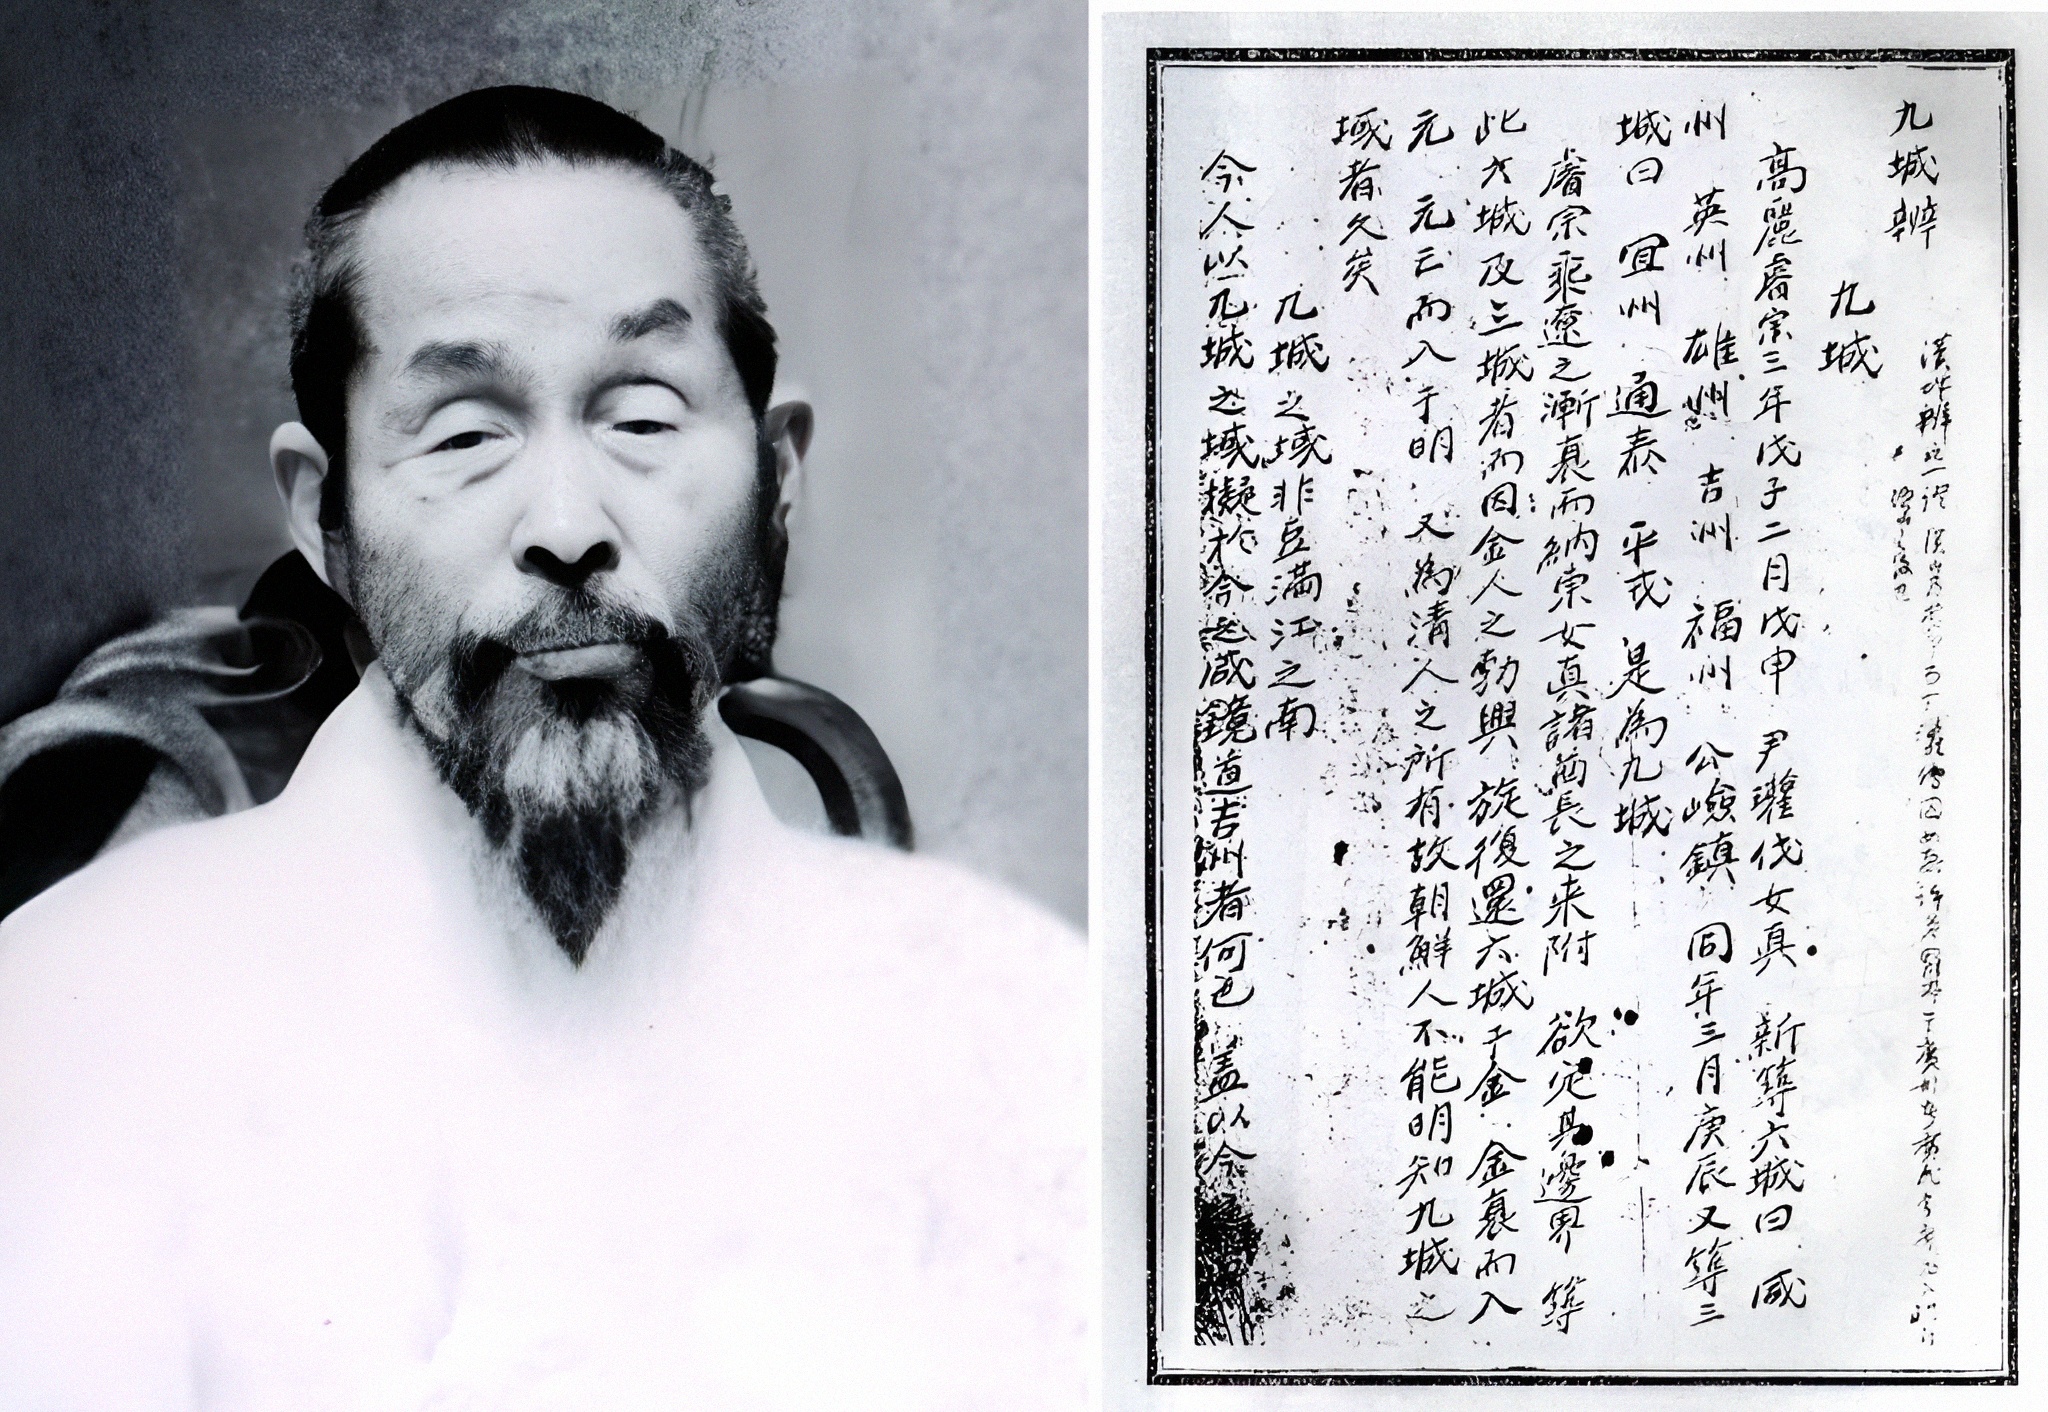 九城辨
九城
高麗睿宗三年戊子二月戊申 尹瓘伐女真 新築六城曰 咸
州 英州 雄州 吉洲 福州 公嶮鎮 同年三月庚辰又築三
城曰 宜州 通泰 平戎 是為九城
睿宗乘遼之漸衰而納東女真諸酋長之来附 欲定其邊界 築
此六城及三城者而因金人之勃興 旋復還六城于金 金衰而入
元 元亡而入于明 又為清人之所有故朝鮮人不能明知九城之
域者久矣
九城之域非豆满江之南
今人以九城之域擬於今之咸鏡道吉洲者何也 盖以今